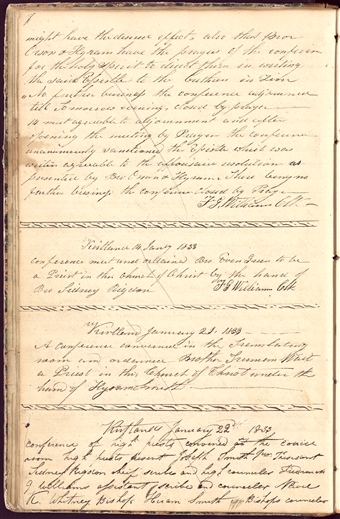 might have the desired effect, also that Bror
Orson & Hyram have the prayers of the conferen
for the holy Spirit to direct them in writing
the said Epistle to the brethren in Zion
No further business the conference adjourned
till tomorrow evening, closed by prayer
met agreeable to adjournment and after
opening the meeting by Prayer the conference
unanimously sanctioned the Epistle which was
writen agreeable to the resolution as
presented by Bro Orson & Hyrum. There being no
further business the conference closed by Prayr
F G Williams Clk
Kirtland 14 Jany 1833
conference met and ordained Bro Green to be
a Priest in the Church of Christ by the hand of
Bro Sidney Rigdon F G William Clk
Kirtland January 21. 1833
A conference convened in the Translating
room and ordained Brother Truman Wait
a Priest in this Church of Christ under the
hand of Hyrum Smith
Kirtland January 22d 1833
conference of high priests convened at the council
room high priests present Joseph Smith Jnr President
Sidney Rigdon chief scribe and high counselor Frederick
G Williams assistant scribe and counselor Newel
K. Whitney Bishop Hiram Smith Bishops counselor